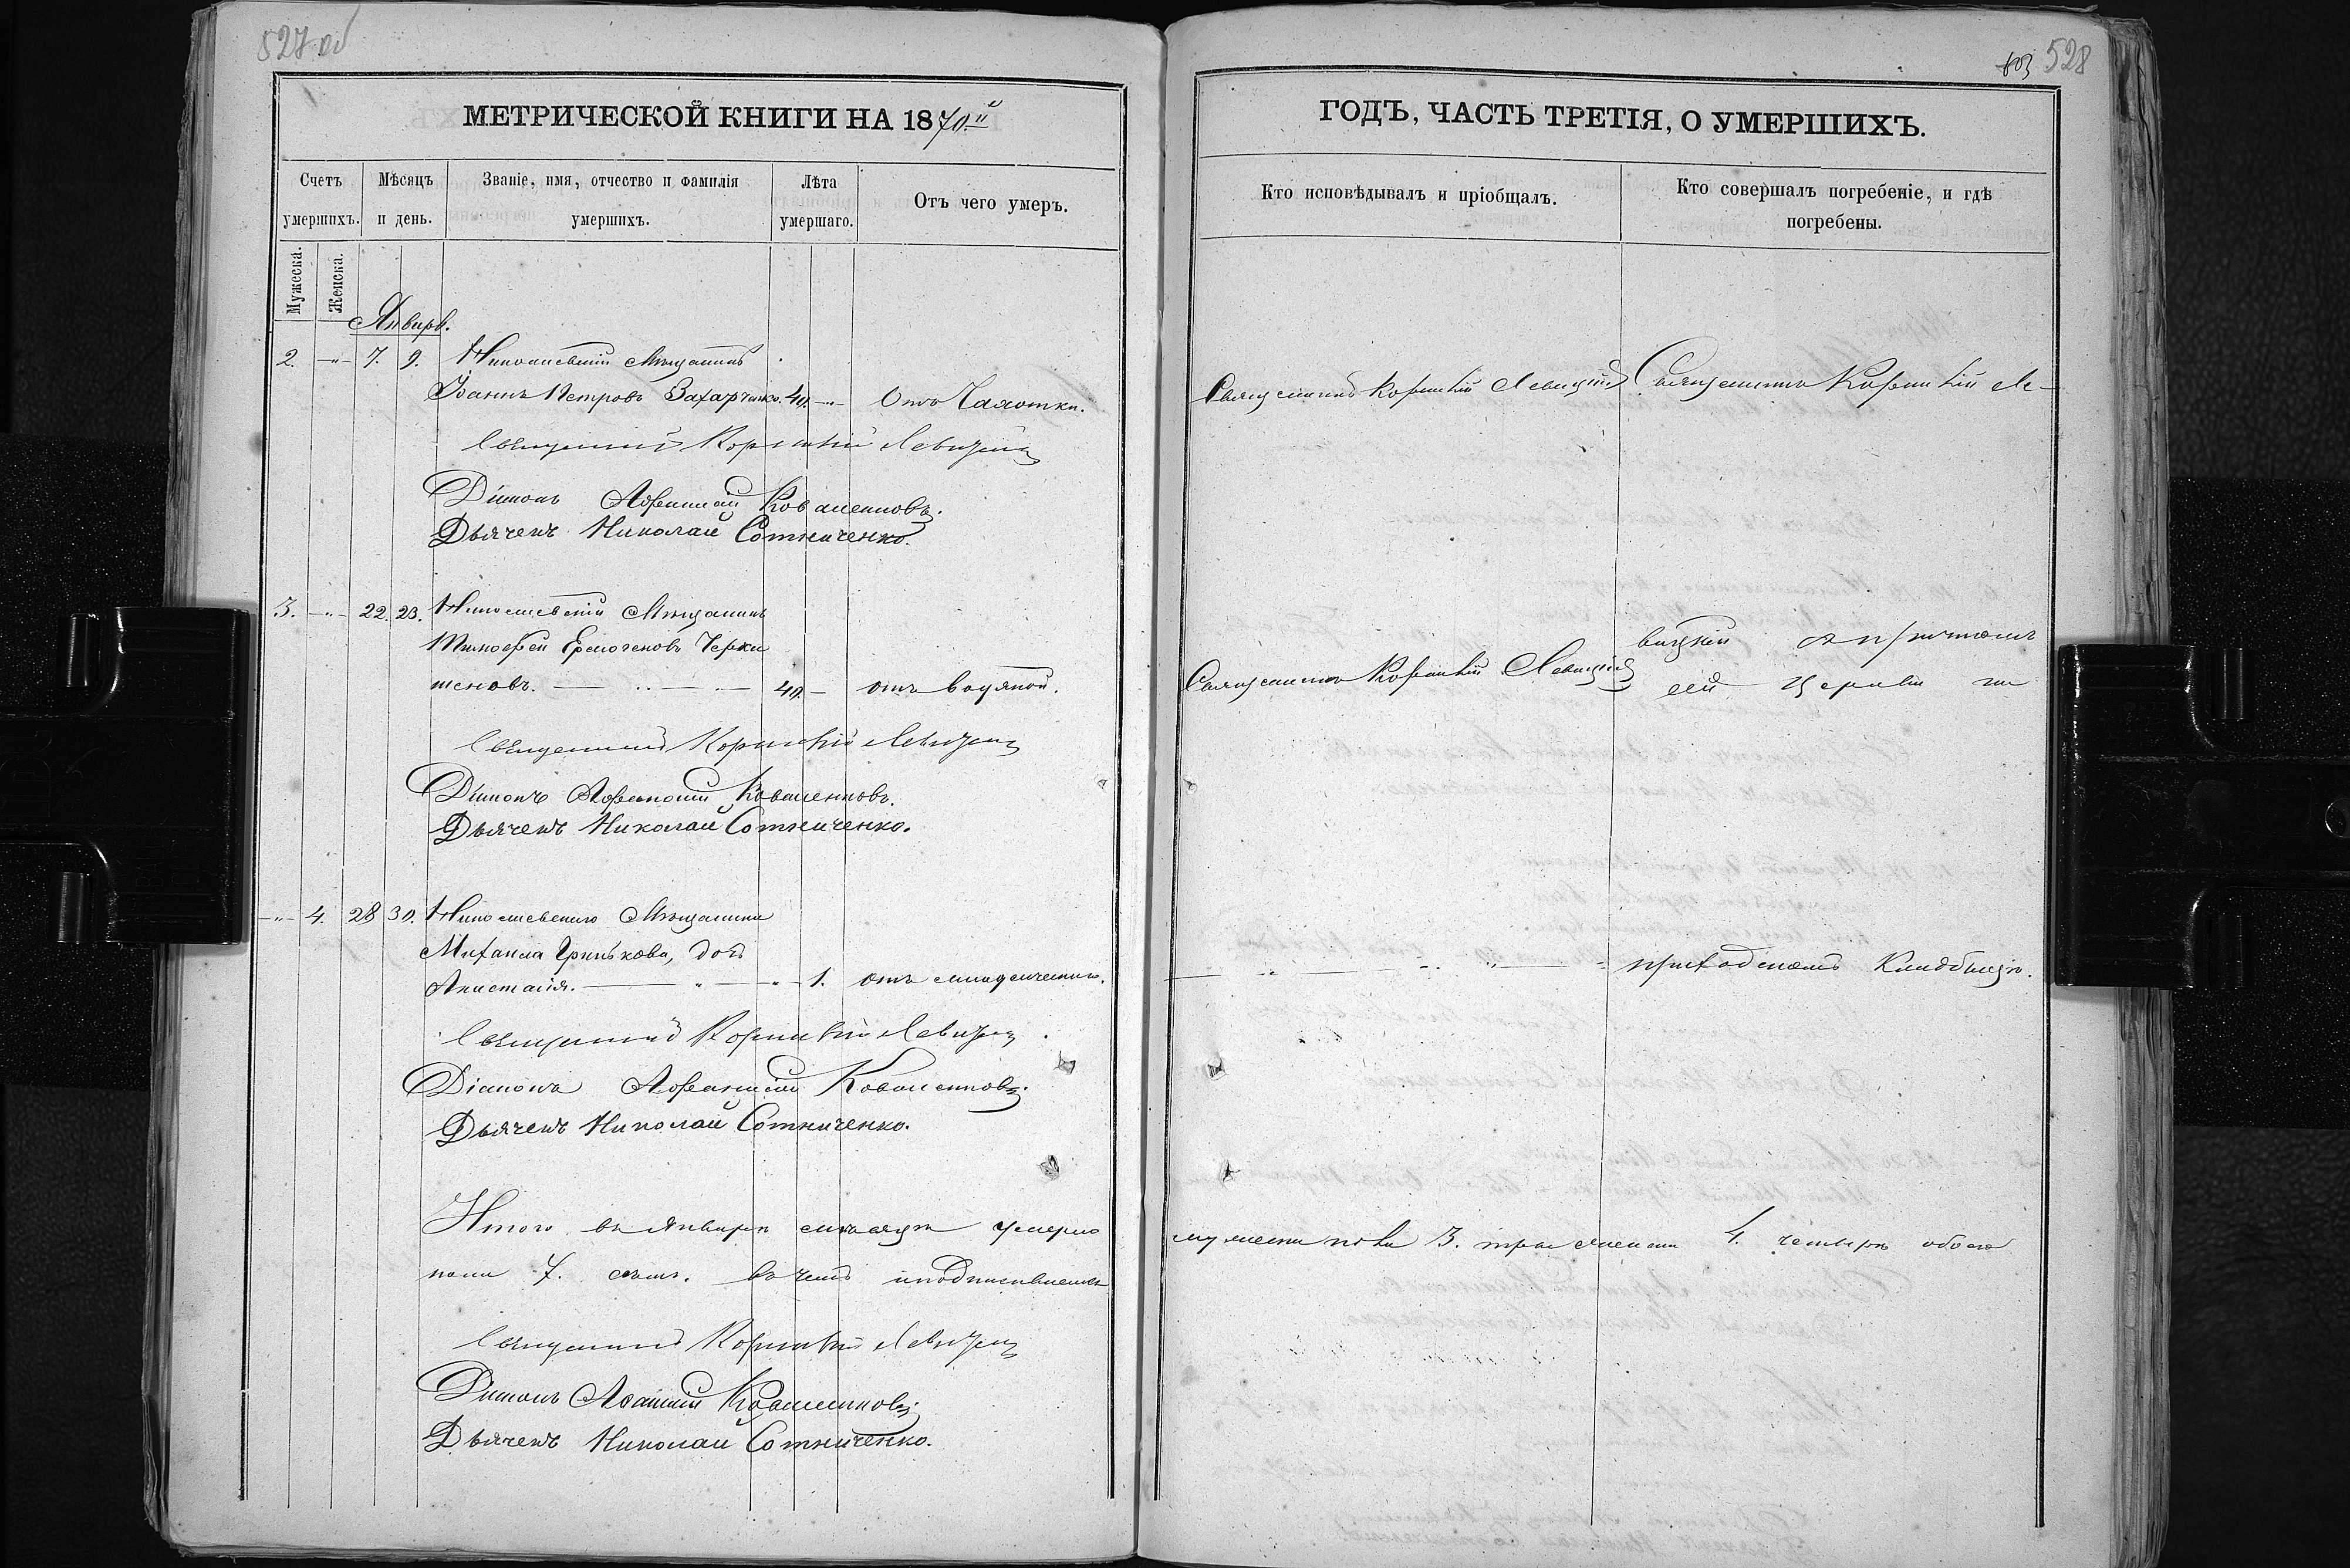 527 об
МЕТРИЧЕСКОЙ КНИГИ НА 1870й
Счетъ умершихъ.
Мѣсяцъ и день.
Званіе, имя, отчество и фамилія умершихъ.
Лѣта умершаго.
Отъ чего умеръ.
Мужеска.
Женска.
Январь.
2. —"— 7. 9. Николаевскій Мѣщанинъ
Іоаннъ Петровъ Захарченко. 40. —"— Отъ Чахотки.
Священникъ Корнилій Левицкій
Діаконъ Афанасій Коваленковъ.
Дьячекъ Николай Сотниченко.
3. —"— 22. 23. Николаевскій Мѣщанинъ
Тимофей Ермогеновъ Черка
шеновъ. 40. — отъ водяной.
Священникъ Корнилій Левицкій
Діаконъ Афанасій Коваленковъ.
Дьячекъ Николай Сотниченко.
—"— 4. 28 30. Николаевскаго Мѣщанина
Михаила Гринькова, дочь
Анастасія. 1. отъ младенческой.
Священникъ Корнилій Левицкій
Діаконъ Афанасій Коваленковъ.
Дьячекъ Николай Сотниченко.
Итого въ Январѣ мѣсяцѣ умерло
пола 7. семь. въ чемъ и подписываемся
Священникъ Корнилій Левицкій
Діаконъ Афанасій Коваленковъ.
Дьячекъ Николай Сотниченко.
528
ГОДЪ, ЧАСТЬ ТРЕТІЯ, О УМЕРШИХЪ.
Кто исповѣдывалъ и пріобщалъ.
Кто совершалъ погребеніе, и гдѣ погребены.
Священникъ Корнилій Левицкій
Священникъ Корнилій Ле-
Священникъ Корнилій Левицкій
вицкій съ причтомъ
сей Церкви на
приходскомъ Кладбищѣ.
мужеска пола 3. три женска 4. четыре обоего